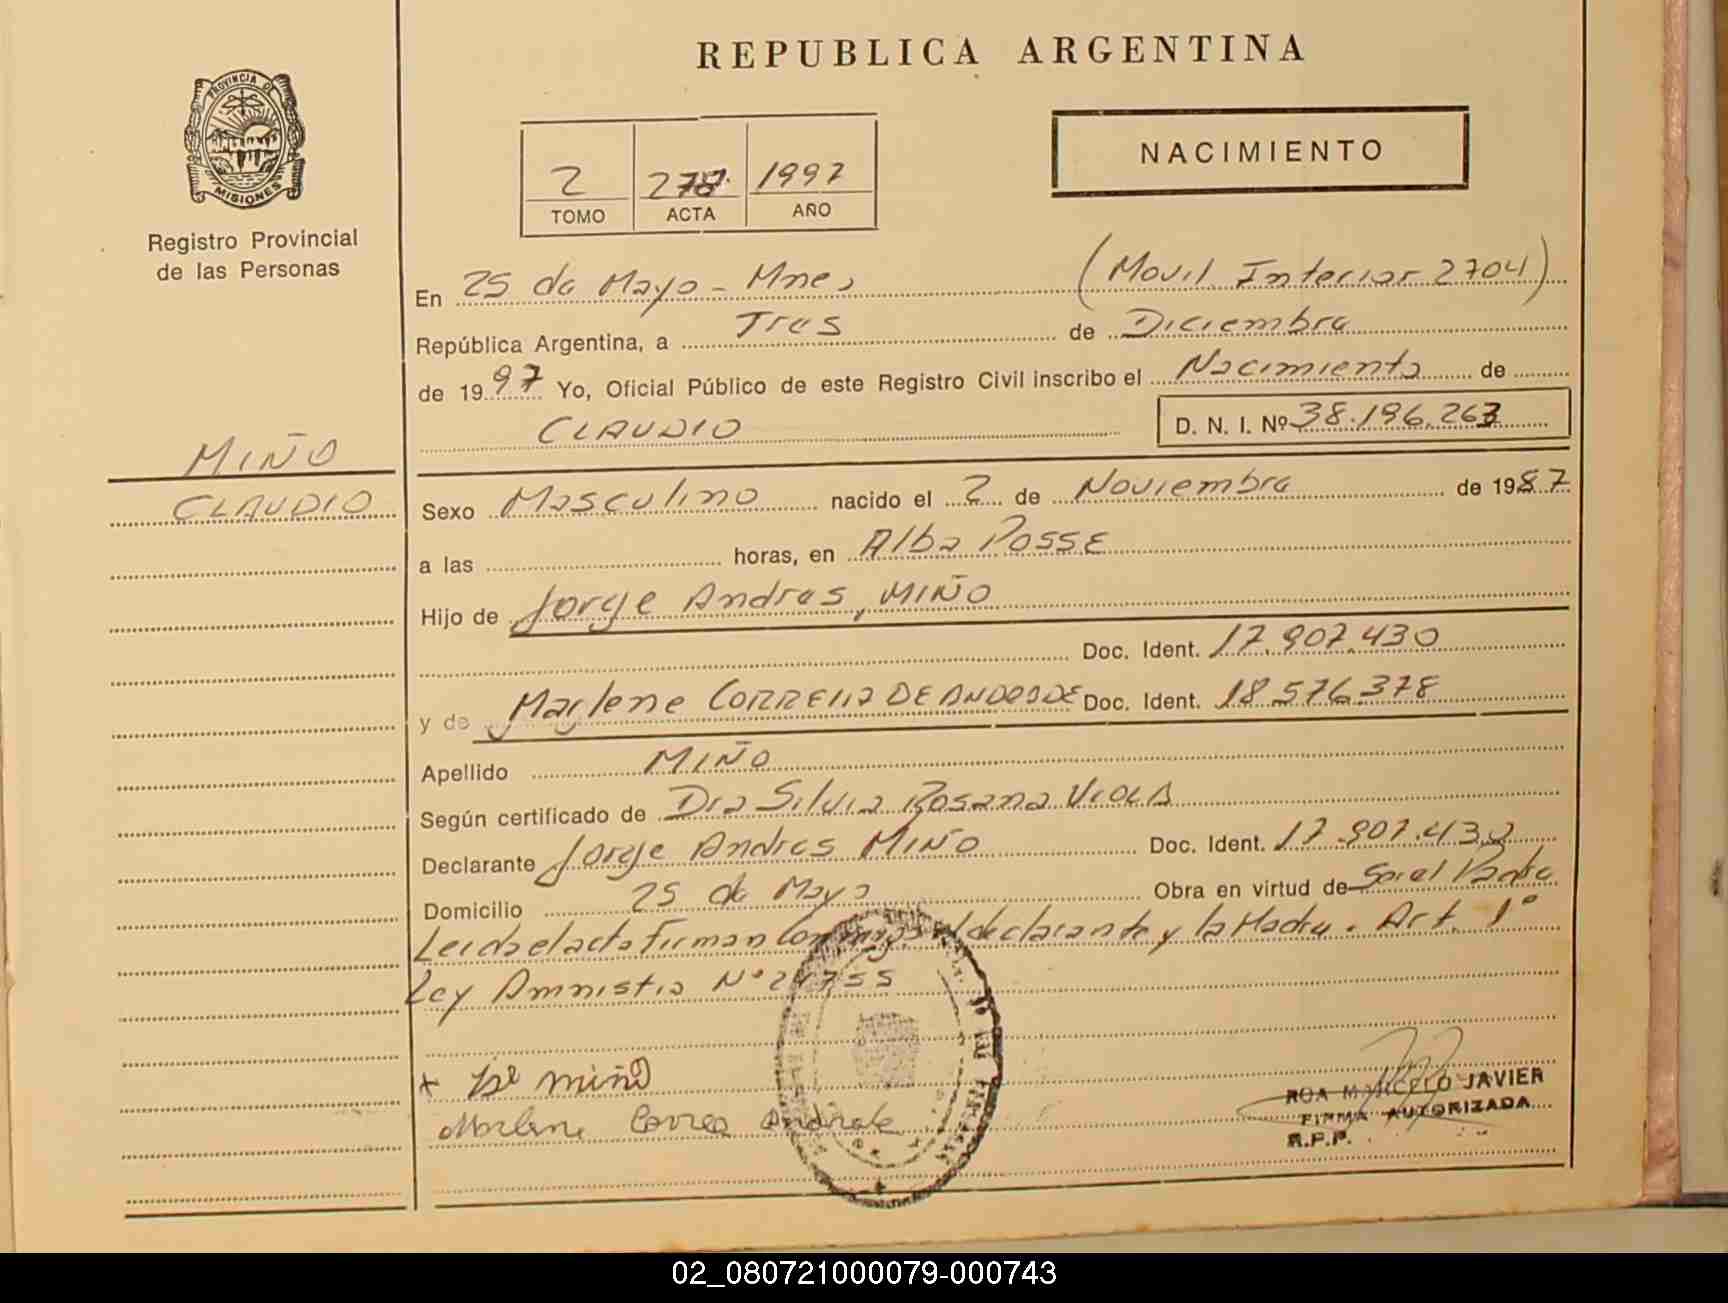 REPUBLICA ARGENTINA
PROVINCIA DE
MISIONES
Registro Provincial
de las Personas
2 TOMO
ACTA
1997 AÑO
NACIMIENTO
En 25 de Mayo - Mnes (Movil Interior 2704)
República Argentina, a Tres de Diciembre
de 1997 Yo, Oficial Público de este Registro Civil inscribo el Nacimiento de
CLAUDIO D. N. I. Nº 38.196.263
MIÑO
CLAUDIO
Sexo Masculino nacido el 2 de Noviembre de 1987
a las horas, en Alba Posse
Hijo de Jorge Andres, MIÑO
Doc. Ident. 17.907.430
y de Marlene CORREIA DE ANDRADE Doc. Ident. 18.576.378
Apellido MIÑO
Según certificado de Dra Silvia Rosana VIOLA
Declarante Jorge Andres MIÑO Doc. Ident. 17.907.430
Domicilio 25 de Mayo Obra en virtud de Ser el Padre
Leida el acta firman conmigo el declarante y la Madre. Art. 1º
Ley Amnistia Nº 24755
miño
Marlene Correa Andrade
ROA MARCELO JAVIER
FIRMA AUTORIZADA
R.P.P.
02_080721000079-000743